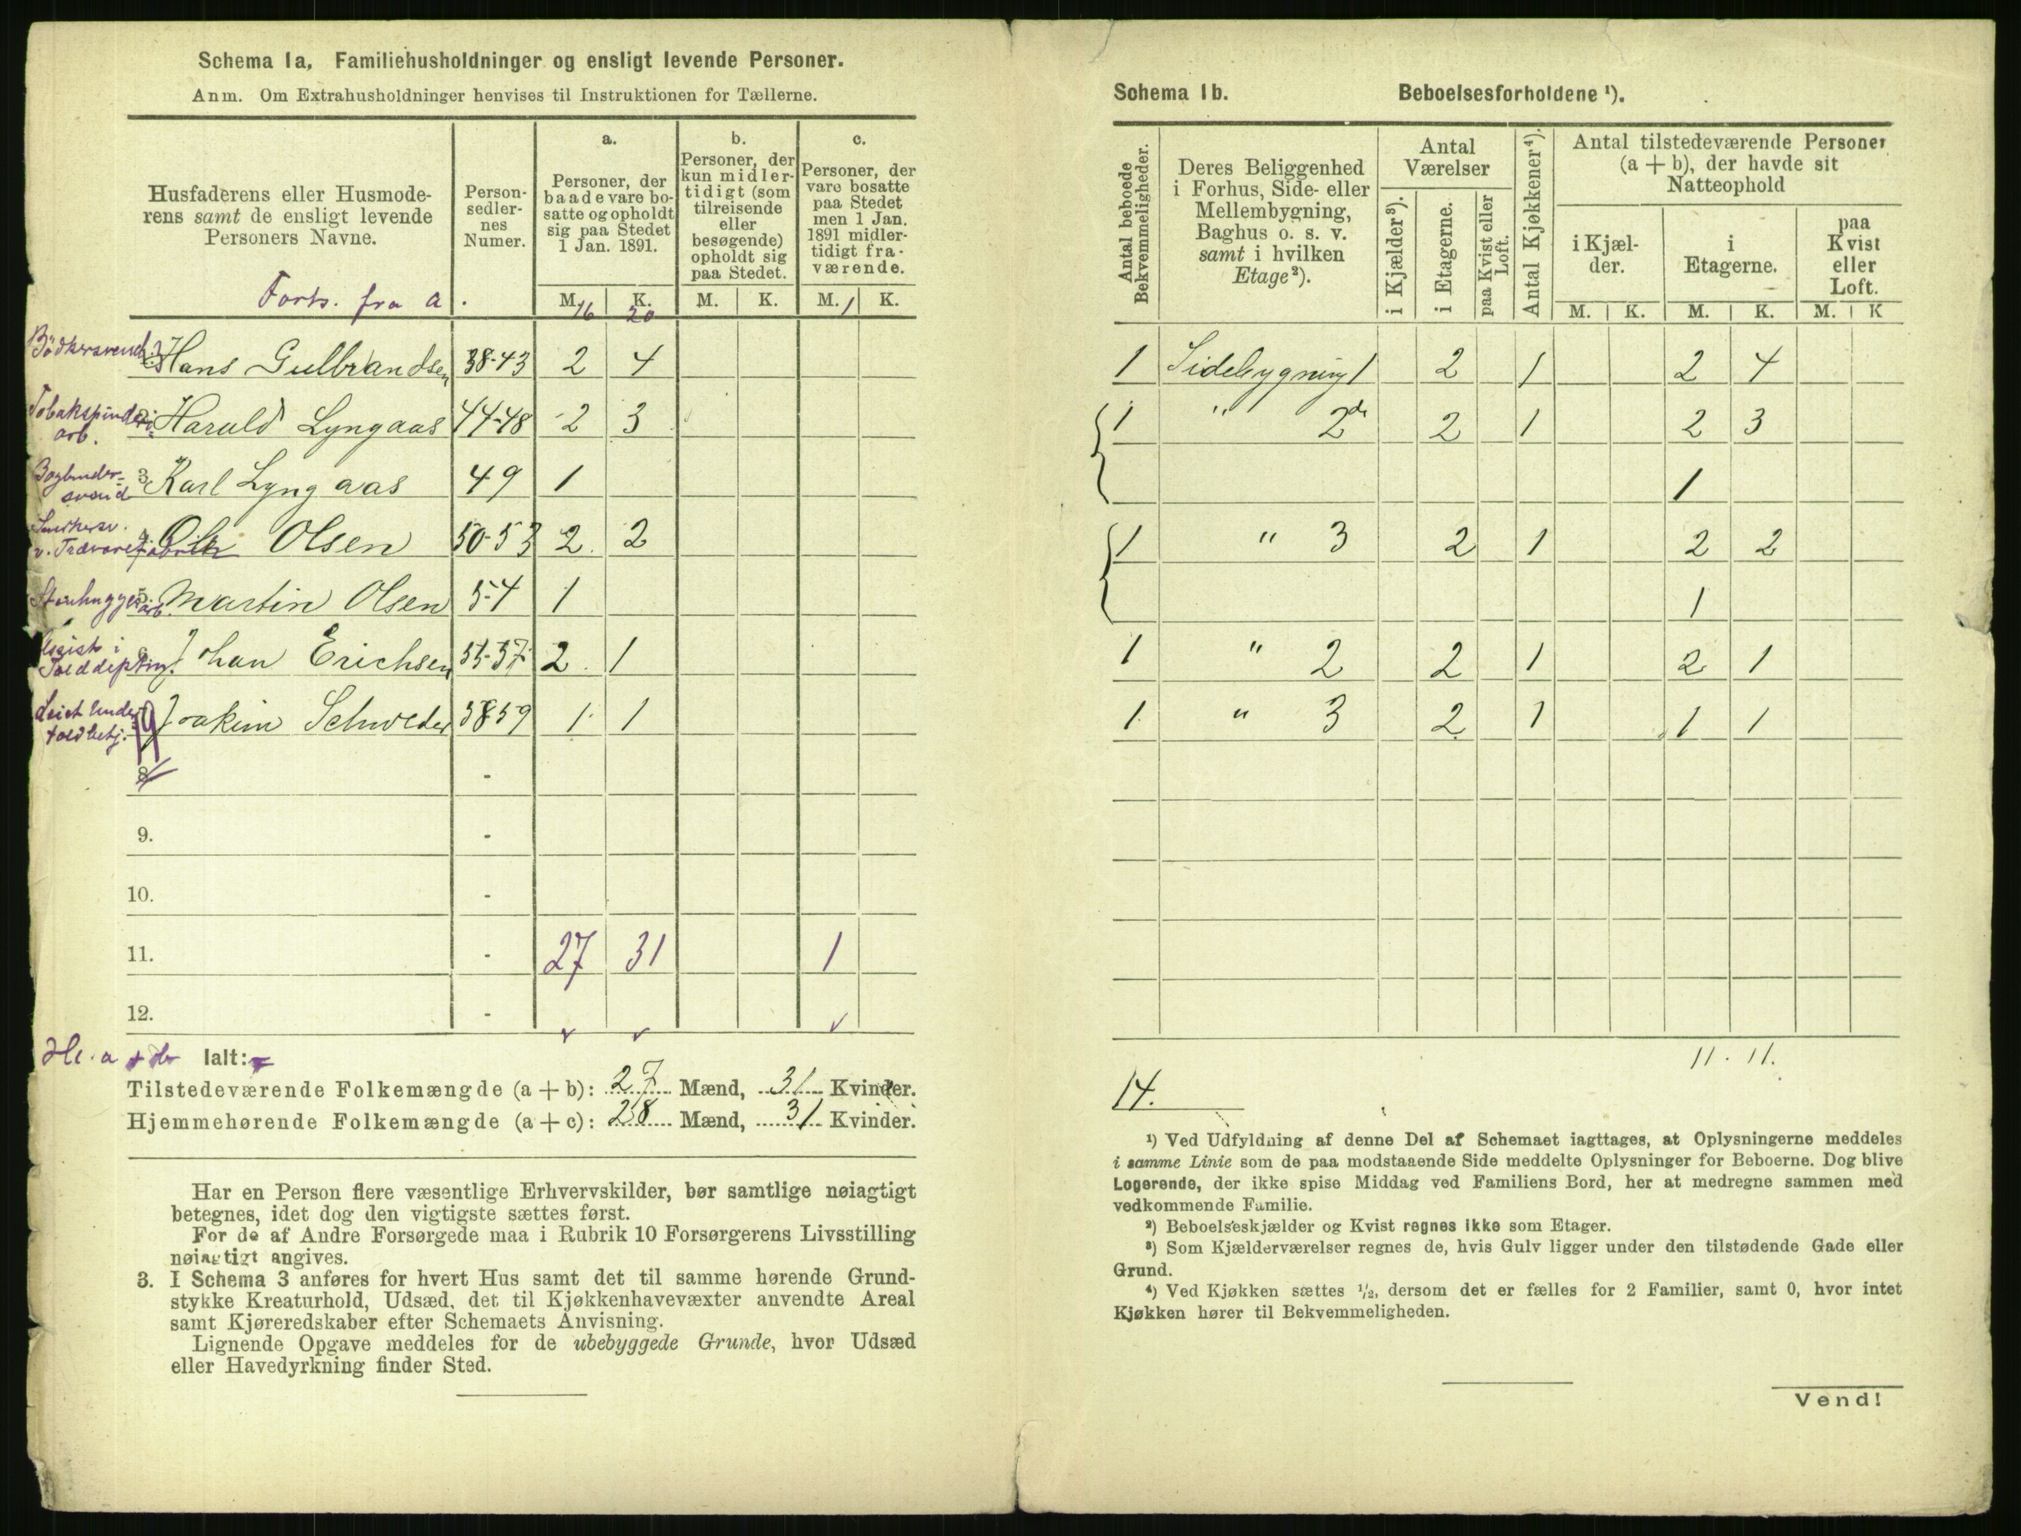 Schema 1a. Familiehusholdninger og ensligt levende Personer.
Anm. Om Extrahusholdninger henvises til Instruktionen for Tællerne.
Husfaderens eller Husmode-
rens samt de ensligt levende
Personers Navne.
Person-
sedler-
nes
Numer.
a.
Personer, der
baade vare bo-
satte og opholdt
sig paa Stedet
1 Jan. 1891.
b.
Personer, der
kun midler-
tidigt (som
tilreisende
eller
besøgende)
opholdt sig
paa Stedet.
c.
Personer, der
vare bosatte
paa Stedet
men 1 Jan.
1891 midler-
tidigt fra-
værende.
M. K. M. K. M. K.
Forts. fra a. 16 20 1
Bödkersvend Hans Gulbrandsen 38-43 2 4
Tobakspinderi
arb. Harald Lyngaas 44-48 2 3
Bogbinder-
svend 3. Karl Lyngaas 49 1
Snekkersv.
v. Trævarefabrik 4. Ole Olsen 50-53 2 2
Stenhugger
arb. 5. Martin Olsen 54 1
i
Tolddeptm. 6. Johan Erichsen 55-57 2 1
toldbetj. Joakim Schrøder 58-59 1 1
8 -
9. -
10. -
11. - 27 31 1
12. -
a + b Ialt:
Tilstedeværende Folkemængde (a + b): 27 Mænd, 31 Kvinder.
Hjemmehørende Folkemængde (a + c): 28 Mænd, 31 Kvinder.
Har en Person flere væsentlige Erhvervskilder, bør samtlige nøiagtigt
betegnes, idet dog den vigtigste sættes først.
For de af Andre Forsørgede maa i Rubrik 10 Forsørgerens Livsstilling
nøiagtigt angives.
3. I Schema 3 anføres for hvert Hus samt det til samme hørende Grund-
stykke Kreaturhold, Udsæd, det til Kjøkkenhavevæxter anvendte Areal
samt Kjøreredskaber efter Schemaets Anvisning.
Lignende Opgave meddeles for de ubebyggede Grunde, hvor Udsæd
eller Havedyrkning finder Sted.
Schema 1b. Beboelsesforholdene ¹).
Antal beboede
Bekvemmeligheder.
Deres Beliggenhed
i Forhus, Side- eller
Mellembygning,
Baghus o. s. v.
samt i hvilken
Etage²).
Antal
Værelser
i Kjælder³).
i Etagerne.
paa Kvist eller
Loft.
Antal Kjøkkener⁴).
Antal tilstedeværende Personer
(a + b), der havde sit
Natteophold
i Kjæl-
der.
i
Etagerne.
paa
Kvist
eller
Loft.
M. K. M. K. M. K
1 Sidebygning 1 2 1 2 4
1 " 2 2 1 2 3
1
1 " 3 2 1 2 2
1
1 " 2 2 1 2 1
1 " 3 2 1 1 1
11. 11.
14.
¹) Ved Udfyldning af denne Del af Schemaet iagttages, at Oplysningerne meddeles
i samme Linie som de paa modstaaende Side meddelte Oplysninger for Beboerne. Dog blive
Logerende, der ikke spise Middag ved Familiens Bord, her at medregne sammen med
vedkommende Familie.
²) Beboelseskjælder og Kvist regnes ikke som Etager.
³) Som Kjælderværelser regnes de, hvis Gulv ligger under den tilstødende Gade eller
Grund.
⁴) Ved Kjøkken sættes ½, dersom det er fælles for 2 Familier, samt 0, hvor intet
Kjøkken hører til Bekvemmeligheden.
Vend!